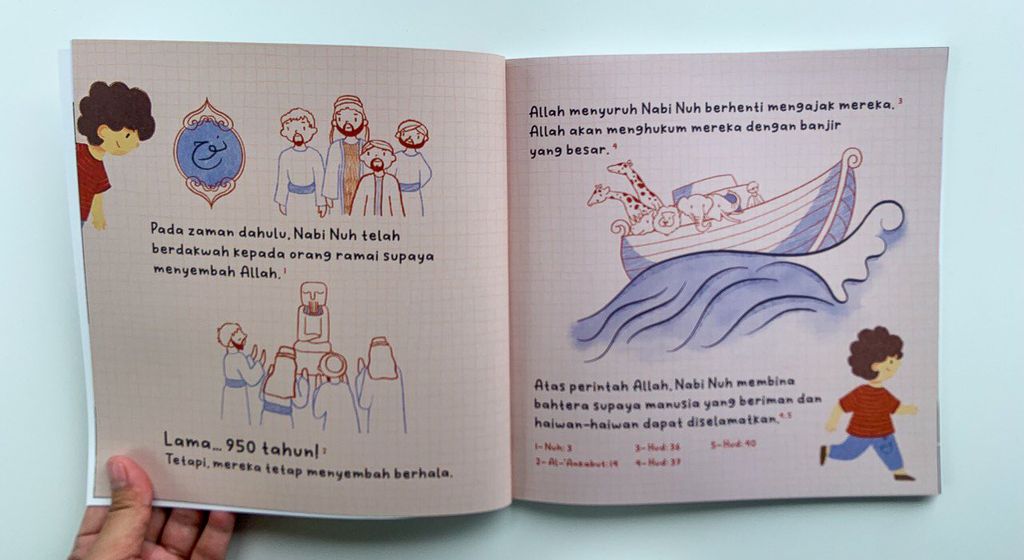 نوح
Pada zaman dahulu, Nabi Nuh telah
berdakwah kepada orang ramai supaya
menyembah Allah.¹
Lama... 950 tahun!²
Tetapi, mereka tetap menyembah berhala.
Allah menyuruh Nabi Nuh berhenti mengajak mereka.³
Allah akan menghukum mereka dengan banjir
yang besar.⁴
Atas perintah Allah, Nabi Nuh membina
bahtera supaya manusia yang beriman dan
haiwan-haiwan dapat diselamatkan.⁴,⁵
1- Nuh: 3
2- Al-'Ankabut: 14
3- Hud: 36
4- Hud: 37
5- Hud: 40